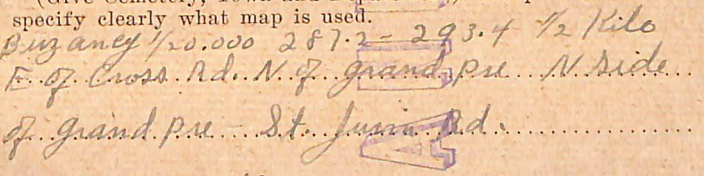 specify clearly what map is used.
Buzancy 1/20.000 287.2 - 293.4 1/2 Kilo
E of Cross Rd. N of grand pre N side
of grand pre - St. Juvin Rd.